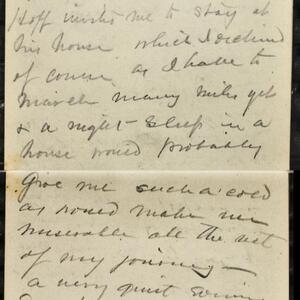 Hoff invites me to stay at
his house which I declined
of course as I have to
march many miles yet
& a night sleep in a
house would probably
give me such a cold
as would make me
miserable all the rest
of my journey –
a very quiet